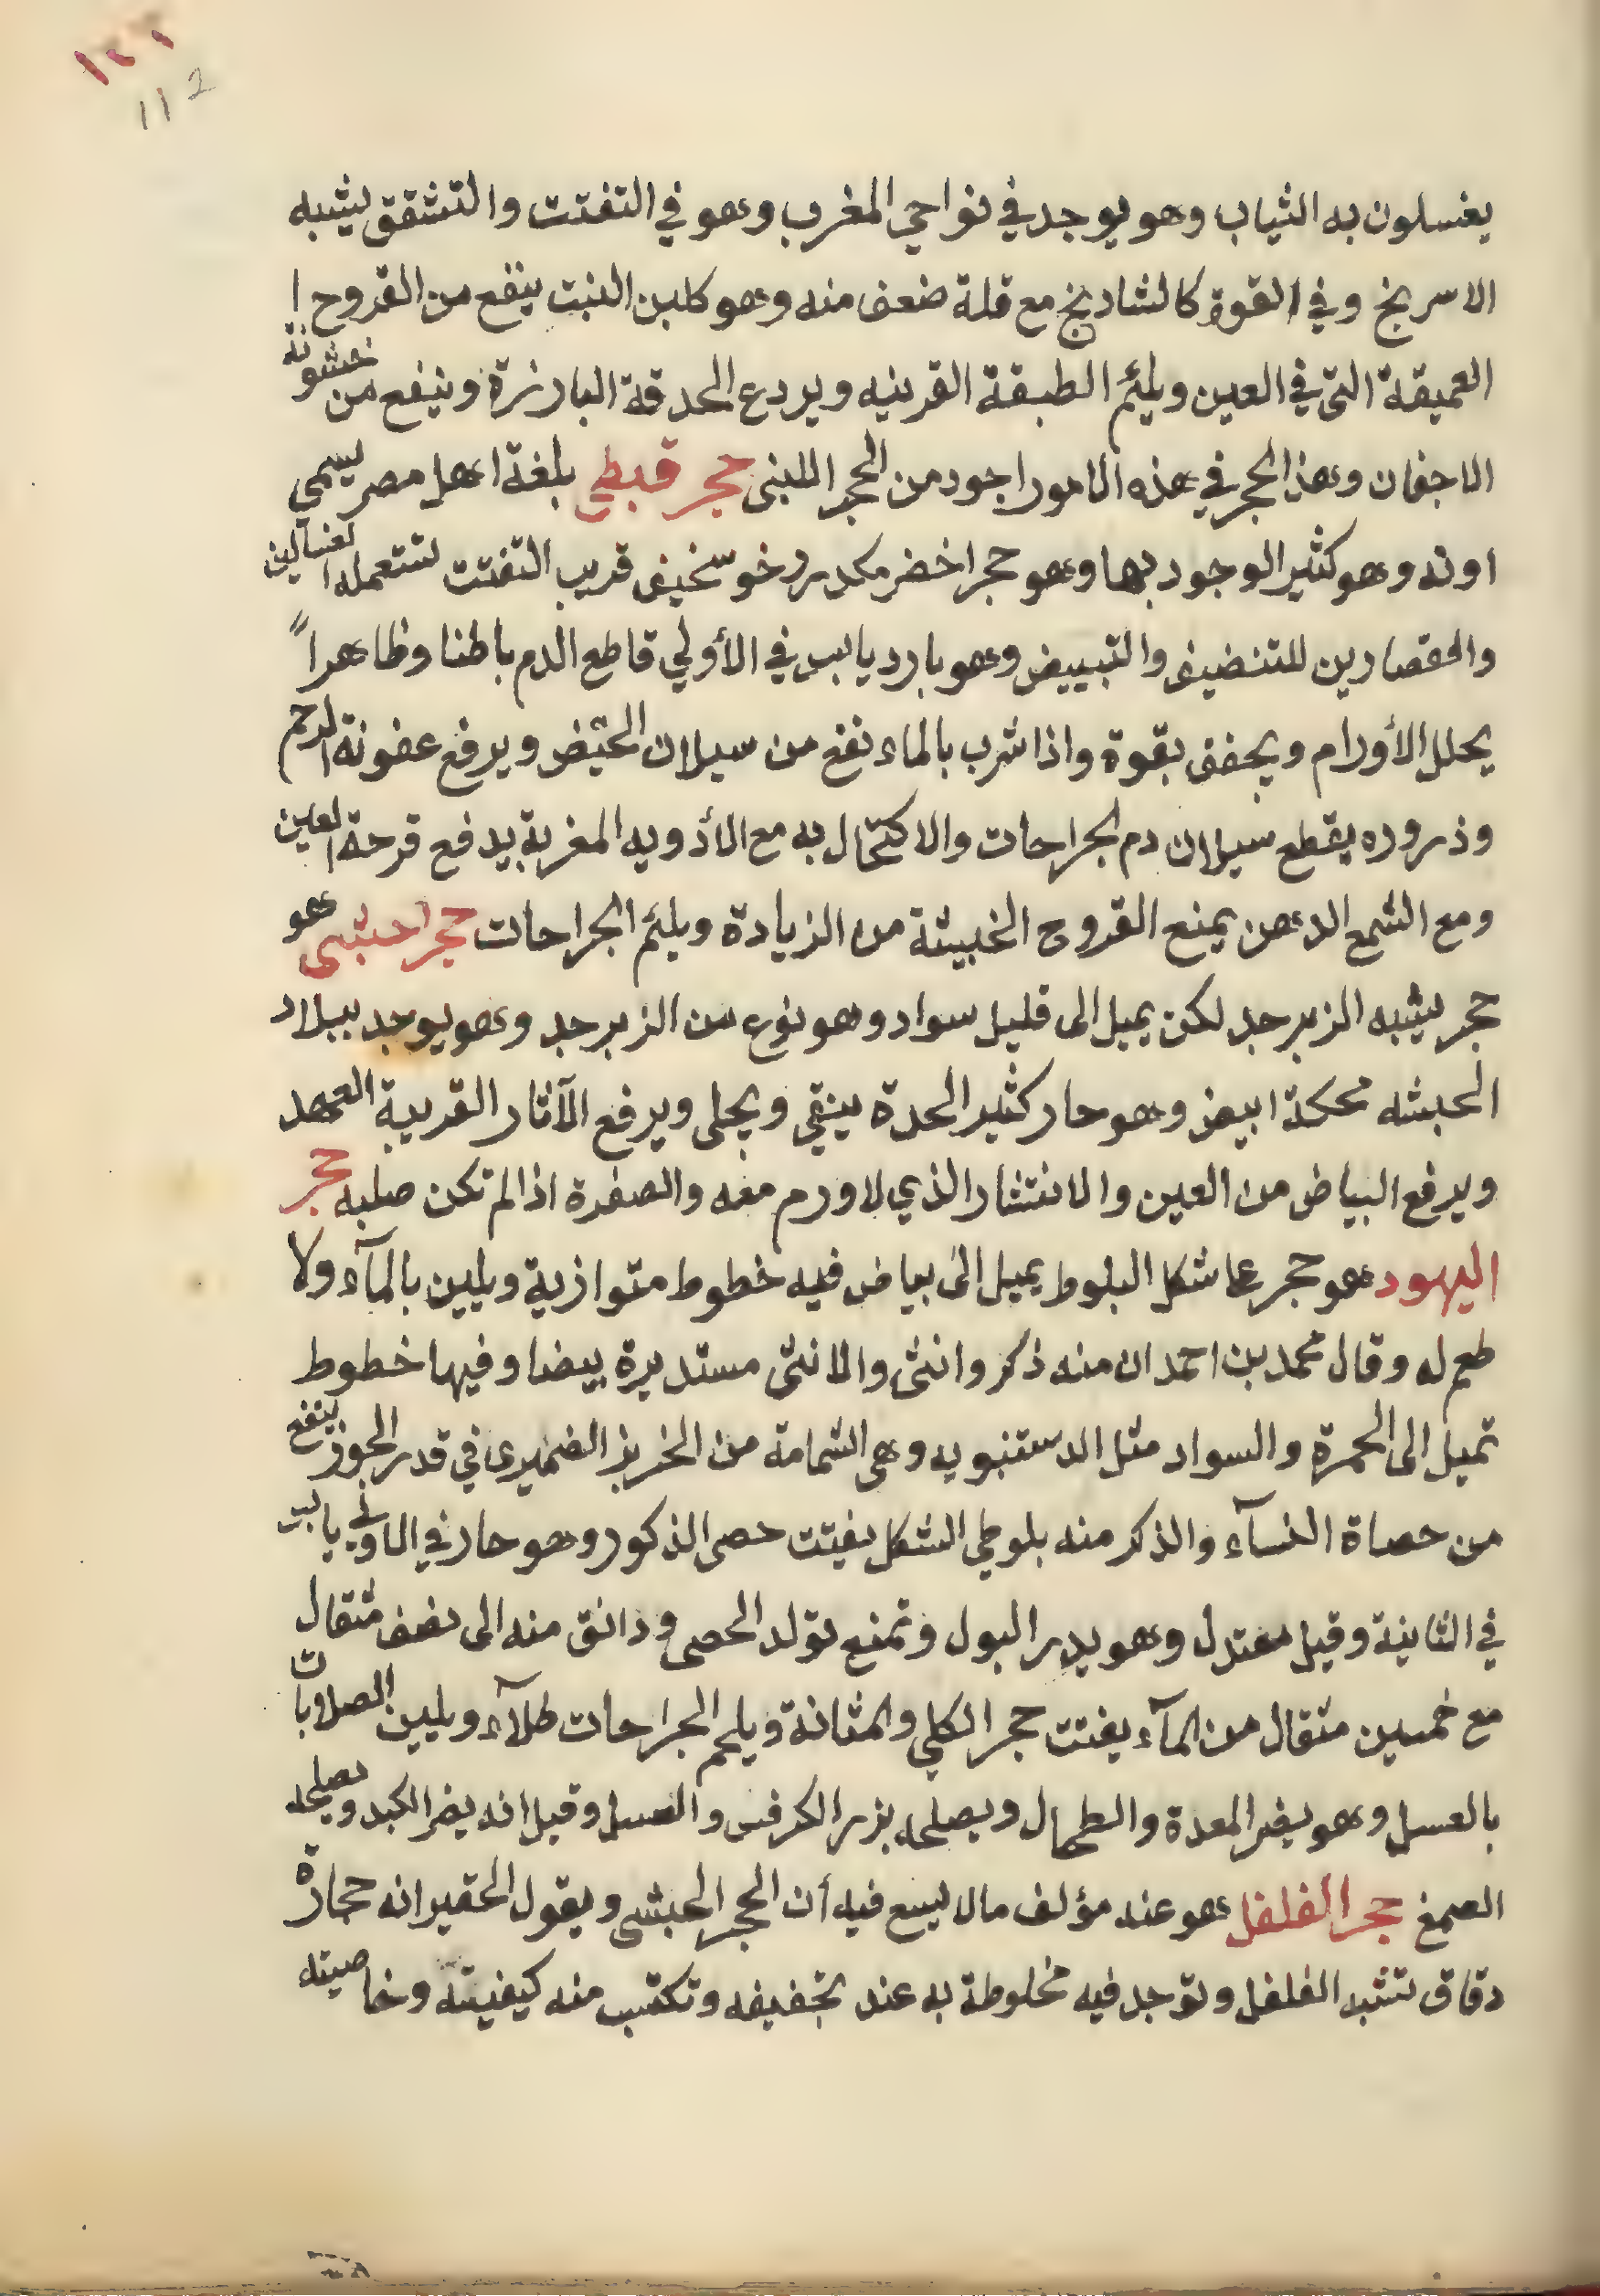 ١٢٢
112
يغسلون به الثياب وهو يوجد في نواحي المغرب وهو في التفتت والتشقق يشبه
الاسريخ وفي القوة كالشاديخ مع قلة ضعف منه وهو كلبن النبت ينفع من القروح ا
العميقة التي في العين ويلئم الطبقة القرينيه ويردع الحدقة البارزة وينفع من خشونة
الاجفان وهذا الحجر في هذه الامور اجود من الحجر اللبنى حجر قبطي بلغة اهل مصر يسمى
اونه وهو كثير الوجود بها وهو حجر اخضر مكدر رخو سخيف قريب التفتت تستعمله الغسالين
والقصارين للتنضيف والتبييض وهو بارد يابس في الأولي قاطع الدم باطنا وظاهراً
يحلل الأورام ويجفف بقوة واذا شرب بالماء نفع من سيلان الحيض ويرفع عفونة الرحم
وذروره يقطع سيلان دم الجراحات والاكتحال به مع الأدويه المغرية يدفع قرحة العين
ومع الشمع الدهن يمنع القروح الخبيثة من الزيادة ويلئم الجراحات حجر احبشى هو
حجر يشبه الزبرجد لكن يميل الى قليل سواد وهو نوع من الزبرجد وهو يوجد ببلاد
الحبشه محكة ابيض وهو حار كثير الحدة ينقي ويجلى ويرفع الآثار القريبة العهد
ويرفع البياض من العين والانتثار الذي لا ورم معه والصفرة اذا لم تكن صلبه حجر
اليهود هو حجر عا شكل البلوط يميل الى بياض فيه خطوط متوازية ويلين بالمآء ولا
طعم له وقال محمد بن احمد ان منه ذكر وانثى والانثى مستديرة بيضا وفيها خطوط
تميل الى الحمرة والسواد مثل الدستنبويه وهى الشمامة من الخربز الضميرى في قدر الجوز ينفع
من حصاة النسآء والذكر منه بلوطي الشكل يفتت حصى الذكور وهو حار في الاولى يابس
في الثانية وقيل معتدل وهو يدر البول وتمنع تولد الحصى ودانق منه الى نصف مثقال
مع خمسين مثقال من المآء يفتت حجر الكلي والمثانة ويلحم الجراحات طلآء ويلين الصلابات
بالعسل وهو يضر المعدة والطحال ويصلحه بزر الكرفس والعسل وقيل انه يضر الكبد ويصلحه
الصمغ حجر الفلفل هو عند مؤلف مالا يسع فيه أن الحجر الحبشى ويقول الحقير انه حجارة
دقاق تشبه الفلفل وتوجد فيه مخلوطة به عند تجفيفه وتكتسب منه كيفيته وخاصيته